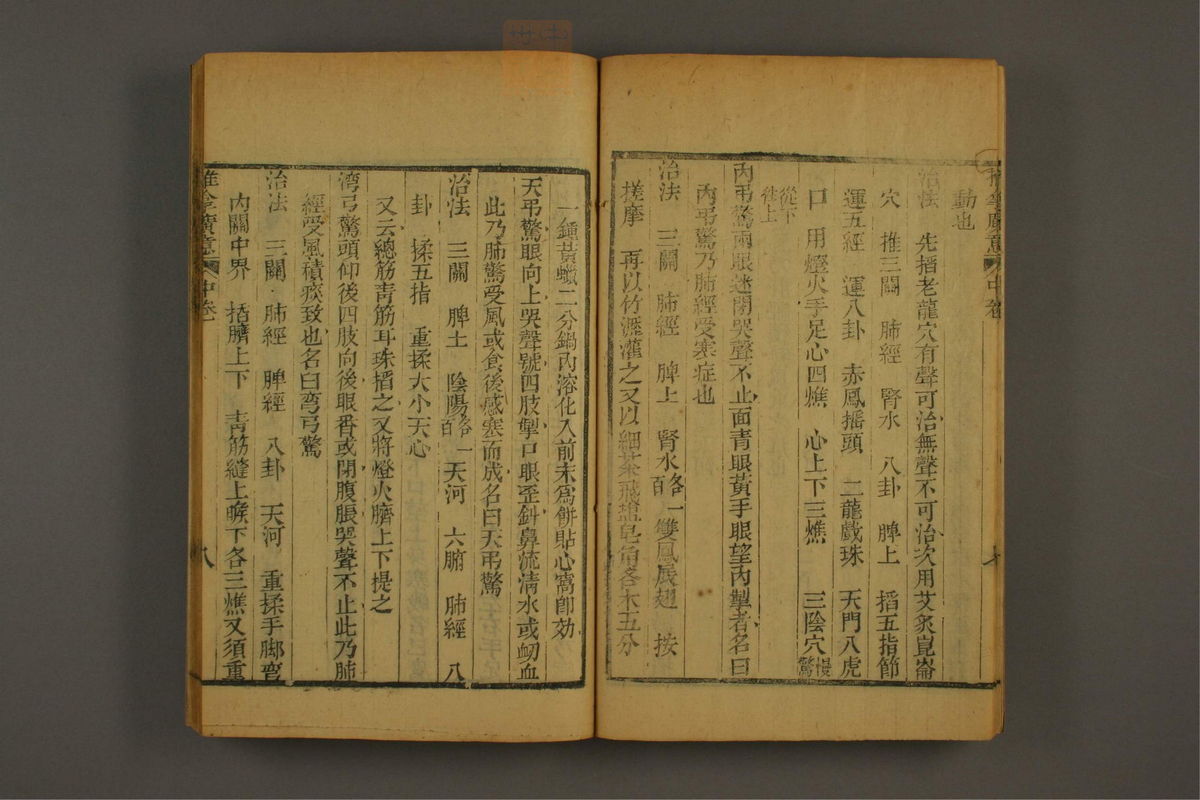 動也
治法　先掐老龍穴有聲可治無聲不可治次用艾灸崑崙
穴　推三關　肺經　腎水　八卦　脾上　掐五指節
運五經　運八卦　赤鳳搖頭　二龍戲珠　天門入虎
口　用燈火手足心四燋　心上下三燋　三陰穴慢驚
從下
徃上
內弔驚兩眼迷閉哭聲不止面青眼黃手眼望內掣者名曰
內弔驚乃肺經受寒症也
治法　三關　肺經　脾上　腎水各一百　雙鳳展翅　按
搓摩　再以竹瀝灌之又以細茶飛塩皂角各木五分
一鍾黃蠟二分鍋內溶化入前末為餅貼心窩卽効
天弔驚眼向上哭聲號四肢掣口眼歪斜鼻流清水或衂血
此乃肺驚受風或食後感寒而成名曰天弔驚
治法　三關　脾土　陰陽各一百　天河　六腑　肺經　八
卦　揉五指　重揉大小天心
又云總筋青筋耳珠掐之又將燈火臍上下提之
灣弓驚頭仰後四肢向後眼番或閉腹脹哭聲不止此乃肺
經受風積痰致也名曰弯弓驚
治法　三關　肺經　脾經　八卦　天河　重揉手脚弯
內關中界　掐臍上下　青筋縫上喉下各三燋又須重
推拿廣意　中卷　八